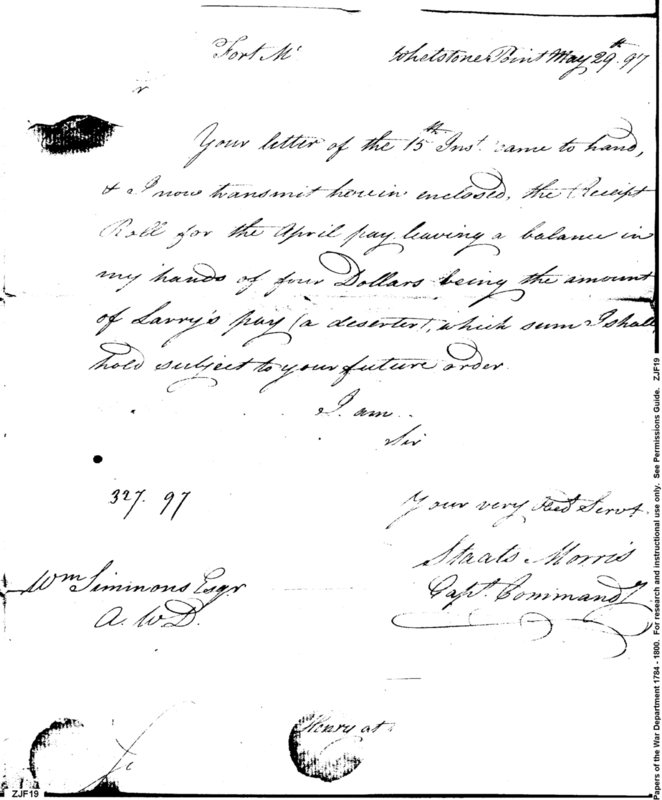 Fort Mc Whetstone Point May 29th 97
Your letter of the 15th Inst. came to hand,
& I now transmit herein enclosed, the Receipt
Roll for the April pay leaving a balance in
my hands of four Dollars being the amount
of Larry's pay (a deserter), which sum I shall
hold subject to your future order.
I am
Sir
327. 97
Your very Obed Servt
Staats Morris
Capt. Commandt
Wm Simmons Esqr
A. W D.
Henry at
ZJF19
Papers of the War Department 1784 - 1800. For research and instructional use only. See Permissions Guide. ZJF19